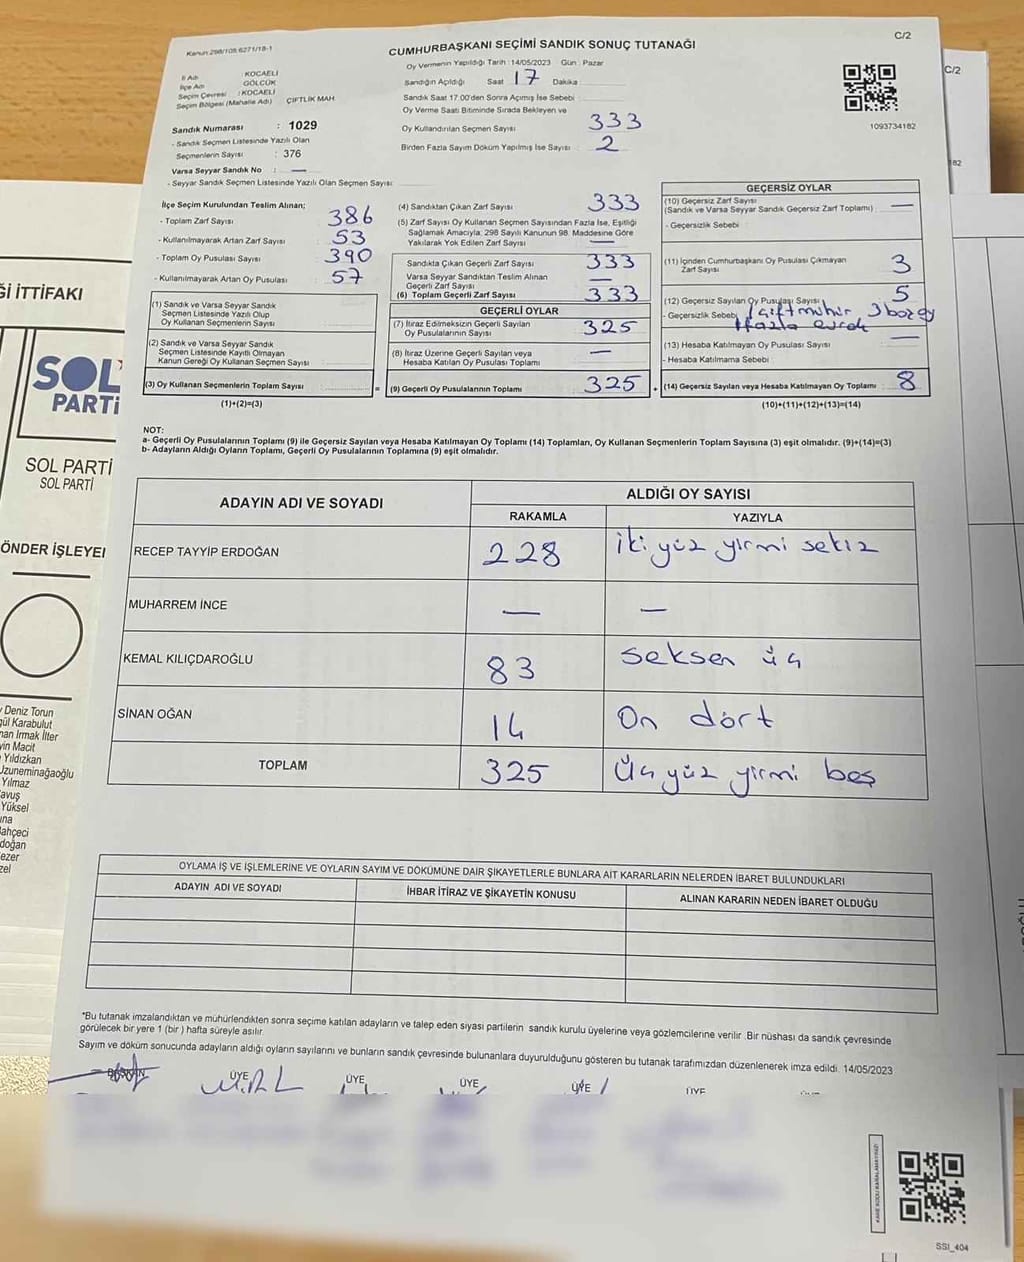 Kanun:298/109.6271/18-1
C/2
CUMHURBAŞKANI SEÇİMİ SANDIK SONUÇ TUTANAĞI
Oy Vermenin Yapıldığı Tarih : 14/05/2023 Gün : Pazar
İl Adı : KOCAELİ
İlçe Adı : GÖLCÜK
Seçim Çevresi : KOCAELİ
Seçim Bölgesi (Mahalle Adı) ÇİFTLİK MAH.
Sandığın Açıldığı Saat 17 Dakika
Sandık Saat 17.00'den Sonra Açımış İse Sebebi
Oy Verme Saati Bitiminde Sırada Bekleyen ve
Oy Kullandırılan Seçmen Sayısı 333
Birden Fazla Sayım Döküm Yapılmış İse Sayısı 2
1093734182
Sandık Numarası : 1029
- Sandık Seçmen Listesinde Yazılı Olan
Seçmenlerin Sayısı : 376
Varsa Seyyar Sandık No : —
- Seyyar Sandık Seçmen Listesinde Yazılı Olan Seçmen Sayısı
İlçe Seçim Kurulundan Teslim Alınan;
- Toplam Zarf Sayısı 386
- Kullanılmayarak Artan Zarf Sayısı 53
- Toplam Oy Pusulası Sayısı 390
- Kullanılmayarak Artan Oy Pusulası 57
(1) Sandık ve Varsa Seyyar Sandık
Seçmen Listesinde Yazılı Olup
Oy Kullanan Seçmenlerin Sayısı
(2) Sandık ve Varsa Seyyar Sandık
Seçmen Listesinde Kayıtlı Olmayan
Kanun Gereği Oy Kullanan Seçmen Sayısı
(3) Oy Kullanan Seçmenlerin Toplam Sayısı =
(1)+(2)=(3)
(4) Sandıktan Çıkan Zarf Sayısı 333
(5) Zarf Sayısı Oy Kullanan Seçmen Sayısından Fazla İse, Eşitliği
Sağlamak Amacıyla, 298 Sayılı Kanunun 98. Maddesine Göre
Yakılarak Yok Edilen Zarf Sayısı —
Sandıkta Çıkan Geçerli Zarf Sayısı 333
Varsa Seyyar Sandıktan Teslim Alınan
Geçerli Zarf Sayısı
(6) Toplam Geçerli Zarf Sayısı 333
GEÇERLİ OYLAR
(7) İtiraz Edilmeksizin Geçerli Sayılan
Oy Pusulalarının Sayısı 325
(8) İtiraz Üzerine Geçerli Sayılan veya
Hesaba Katılan Oy Pusulası Toplamı —
(9) Geçerli Oy Pusulalarının Toplamı 325 +
GEÇERSİZ OYLAR
(10) Geçersiz Zarf Sayısı
(Sandık ve Varsa Seyyar Sandık Geçersiz Zarf Toplamı) —
- Geçersizlik Sebebi
(11) İçinden Cumhurbaşkanı Oy Pusulası Çıkmayan
Zarf Sayısı 3
(12) Geçersiz Sayılan Oy Pusulası Sayısı 5
- Geçersizlik Sebebi 1 çift mühür 3 boz ey
1 fazla evrak
(13) Hesaba Katılmayan Oy Pusulası Sayısı —
- Hesaba Katılmama Sebebi
(14) Geçersiz Sayılan veya Hesaba Katılmayan Oy Toplamı 8
(10)+(11)+(12)+(13)=(14)
NOT:
a- Geçerli Oy Pusulalarının Toplamı (9) ile Geçersiz Sayılan veya Hesaba Katılmayan Oy Toplamı (14) Toplamları, Oy Kullanan Seçmenlerin Toplam Sayısına (3) eşit olmalıdır. (9)+(14)=(3)
b- Adayların Aldığı Oyların Toplamı, Geçerli Oy Pusulalarının Toplamına (9) eşit olmalıdır.
ADAYIN ADI VE SOYADI ALDIĞI OY SAYISI
RAKAMLA YAZIYLA
RECEP TAYYİP ERDOĞAN 228 iki yüz yirmi sekiz
MUHARREM İNCE — —
KEMAL KILIÇDAROĞLU 83 seksen üç
SİNAN OĞAN 14 On dört
TOPLAM 325 Üç yüz yirmi beş
OYLAMA İŞ VE İŞLEMLERİNE VE OYLARIN SAYIM VE DÖKÜMÜNE DAİR ŞİKAYETLERLE BUNLARA AİT KARARLARIN NELERDEN İBARET BULUNDUKLARI
ADAYIN ADI VE SOYADI İHBAR İTİRAZ VE ŞİKAYETİN KONUSU ALINAN KARARIN NEDEN İBARET OLDUĞU
*Bu tutanak imzalandıktan ve mühürlendikten sonra seçime katılan adayların ve talep eden siyasi partilerin sandık kurulu üyelerine veya gözlemcilerine verilir. Bir nüshası da sandık çevresinde
görülecek bir yere 1 (bir) hafta süreyle asılır.
Sayım ve döküm sonucunda adayların aldığı oyların sayılarını ve bunların sandık çevresinde bulunanlara duyurulduğunu gösteren bu tutanak tarafımızdan düzenlenerek imza edildi. 14/05/2023
BAŞKAN ÜYE ÜYE ÜYE ÜYE ÜYE
KARE KODU KARALAMAYINIZ!
SSI_404
C/2
182
Ğİ İTTİFAKI
SOL
PARTİ
SOL PARTİ
SOL PARTİ
ÖNDER İŞLEYEN
Deniz Torun
gül Karabulut
nan Irmak İlter
yin Macit
Yıldızkan
Uzuneminağaoğlu
Yılmaz
avuş
Yüksel
ına
ahçeci
doğan
ezer
zel